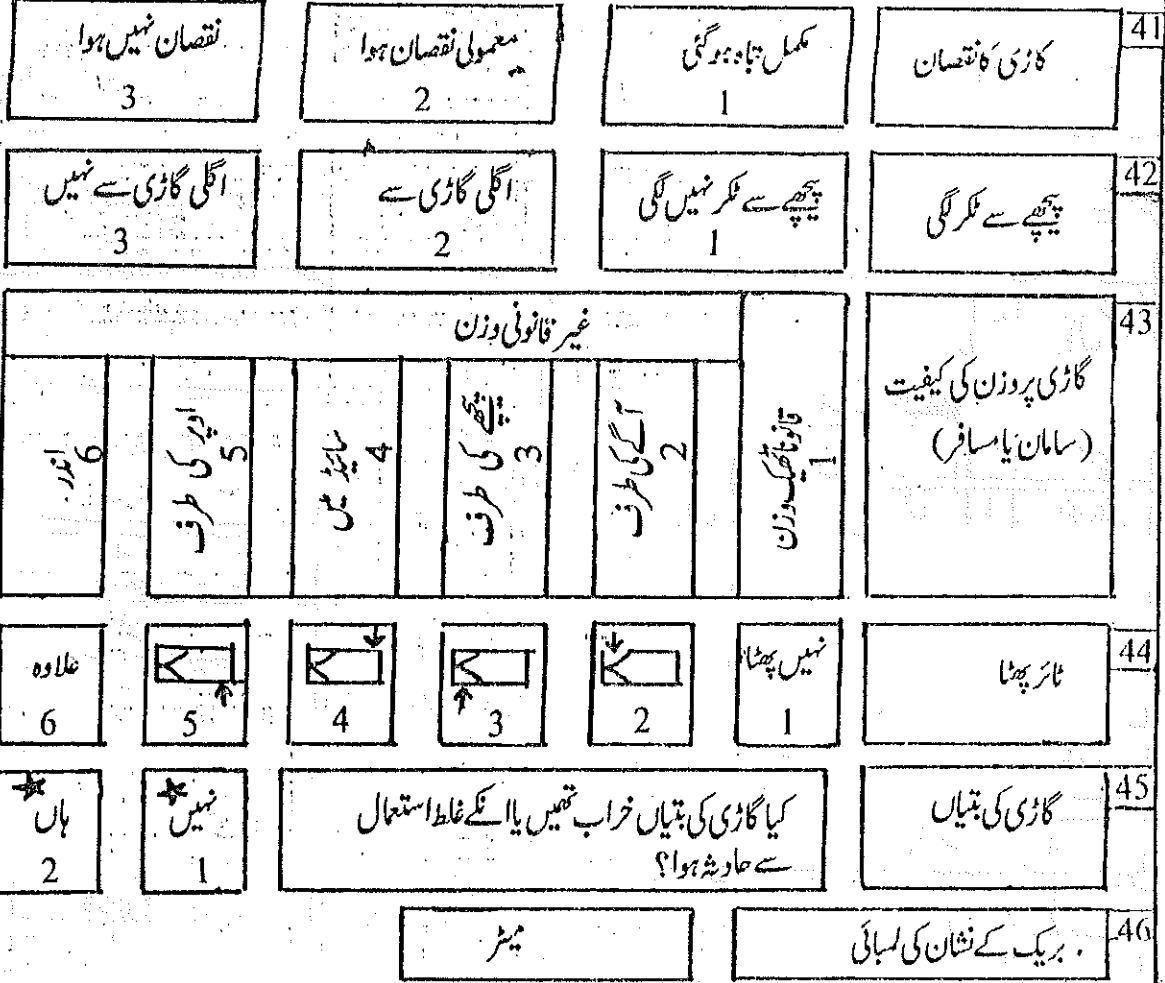 41
گاڑی کا نقصان
مکمل تباہ ہو گئی
1
معمولی نقصان ہوا
2
نقصان نہیں ہوا
3
42
پیچھے سے ٹکر لگی
پیچھے سے ٹکر نہیں لگی
1
اگلی گاڑی سے
2
اگلی گاڑی سے نہیں
3
43
گاڑی پر وزن کی کیفیت
(سامان یا مسافر)
قانوناً ٹھیک وزن
1
غیر قانونی وزن
آگے کی طرف
2
پیچھے کی طرف
3
سائیڈ میں
4
اوپر کی طرف
5
اندر
6
44
ٹائر پھٹا
نہیں پھٹا
1
2
3
4
5
علاوہ
6
45
گاڑی کی بتیاں
کیا گاڑی کی بتیاں خراب تھیں یا انکے غلط استعمال
سے حادثہ ہوا؟
نہیں
1
ہاں
2
46
بریک کے نشان کی لمبائی
میٹر